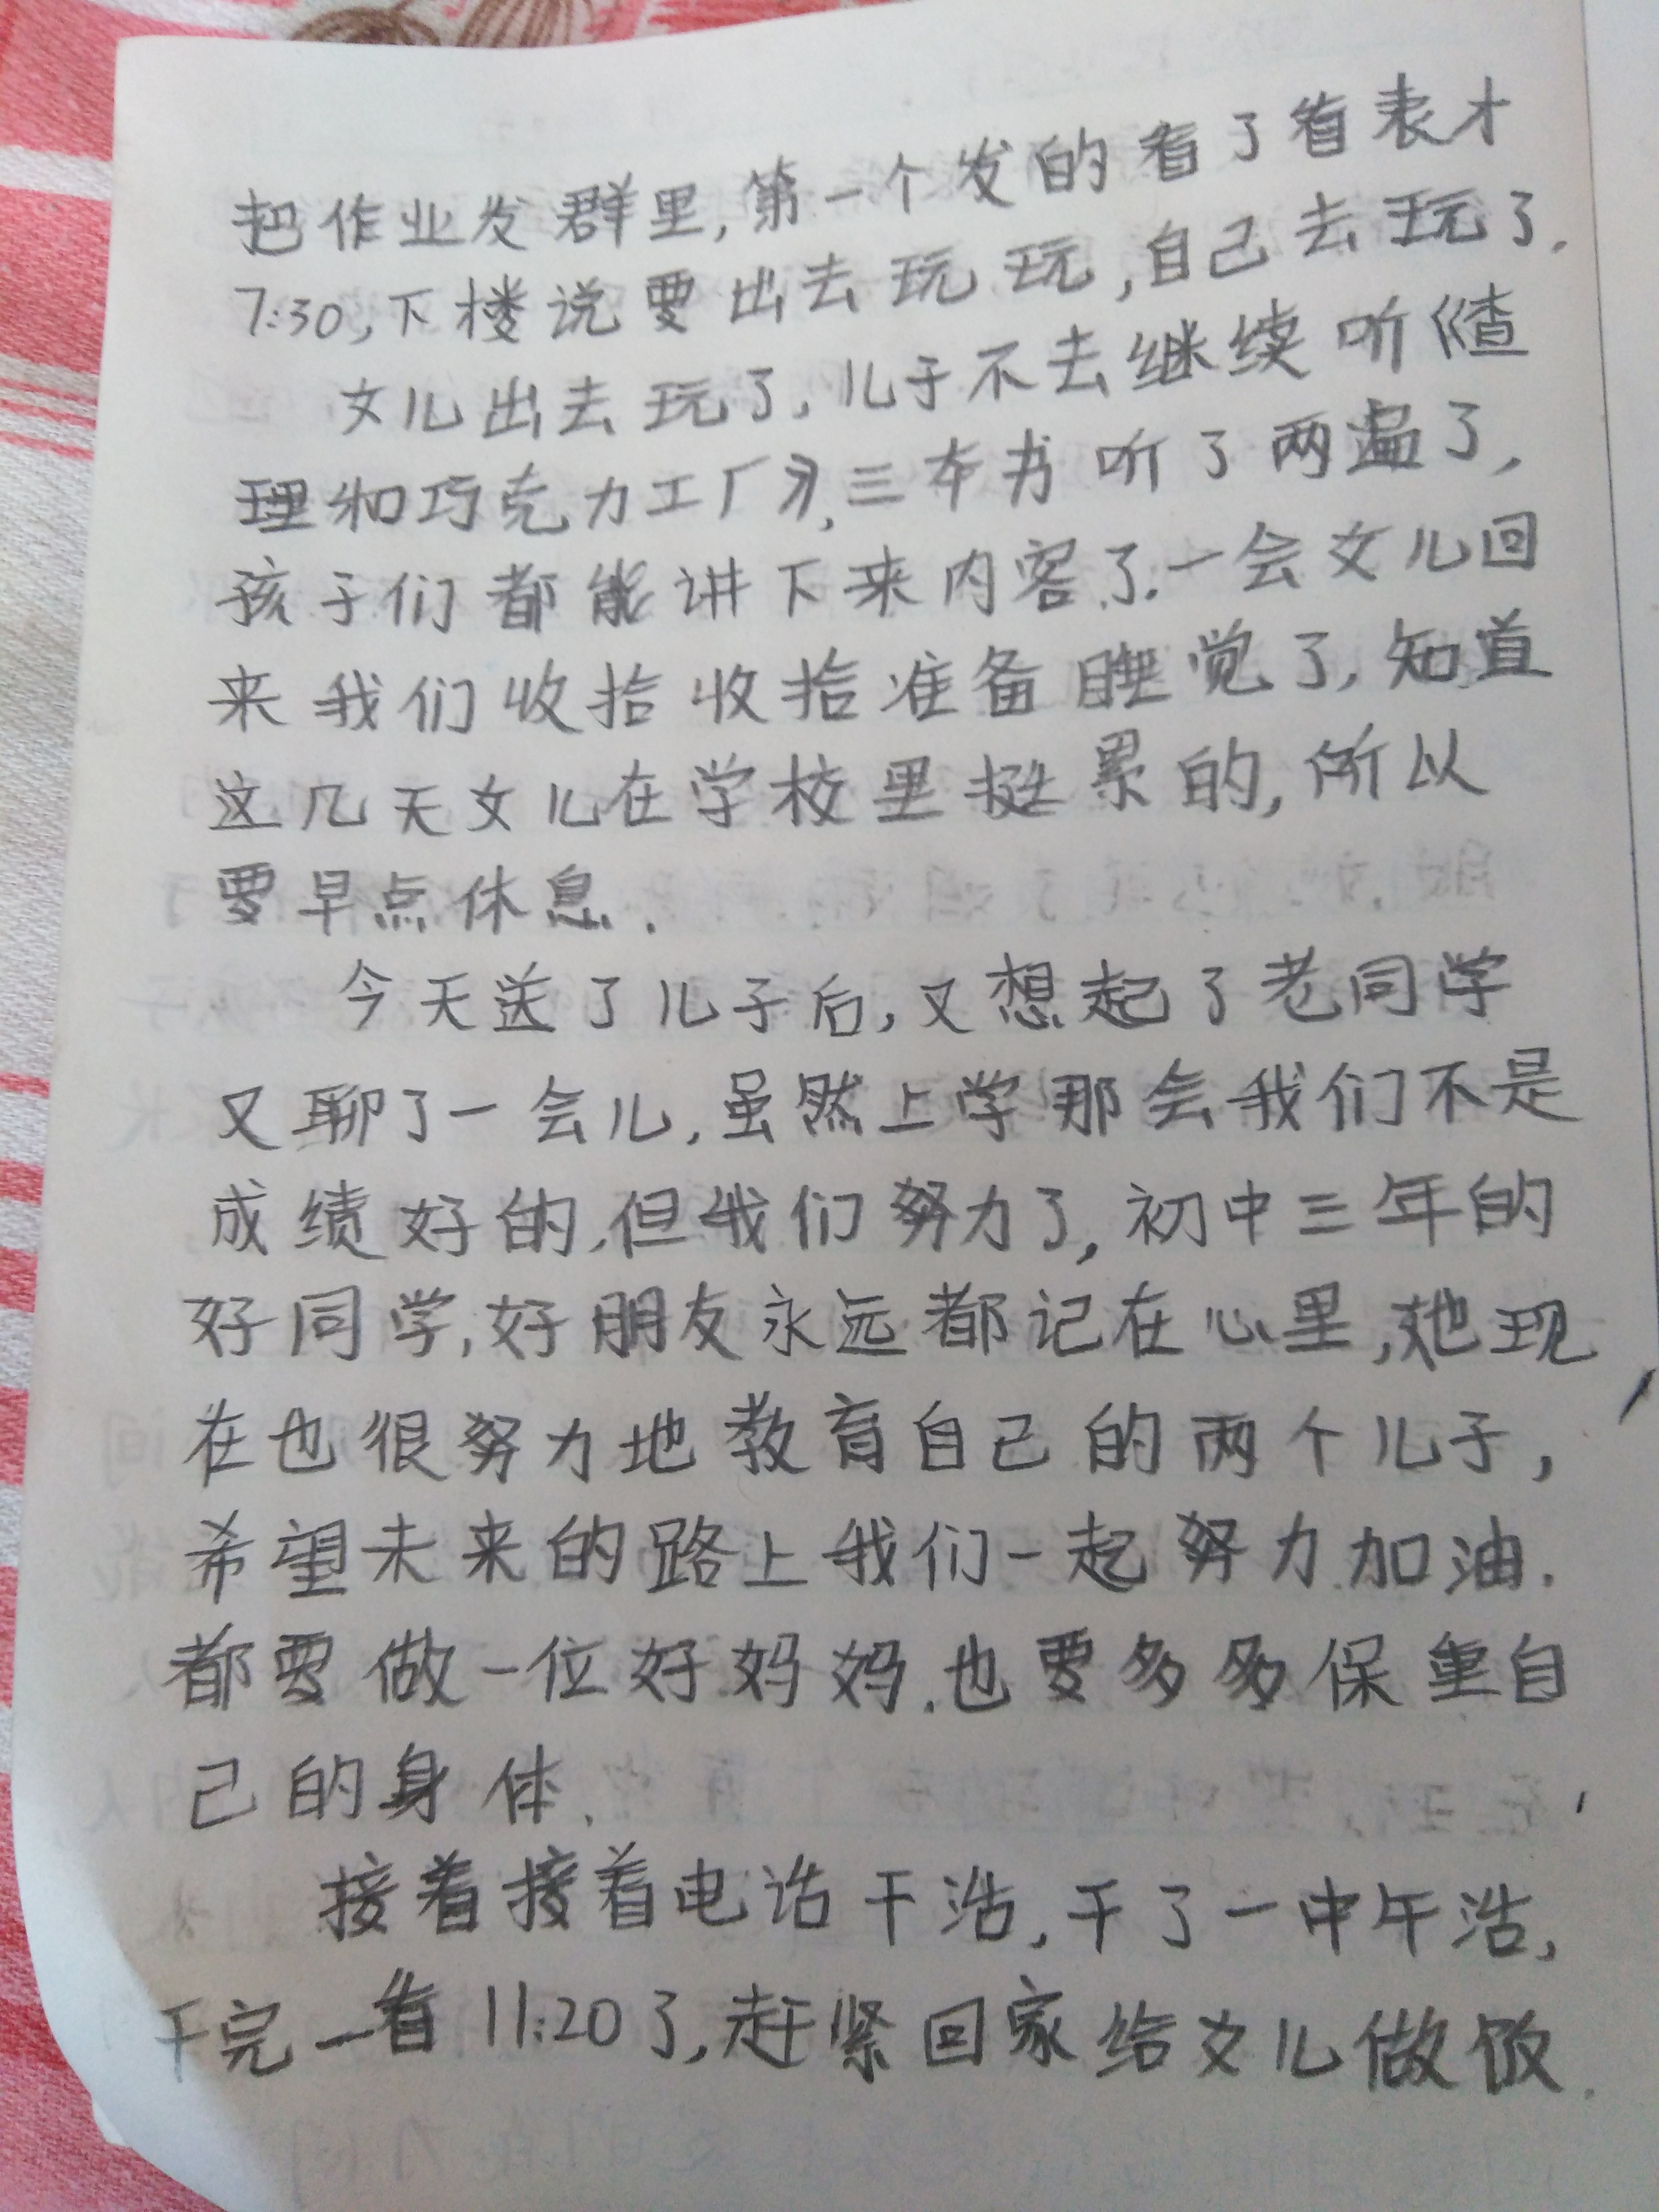 把作业发群里,第一个发的看了看表才
7:30,下楼说要出去玩玩,自己去玩了.
女儿出去玩了,儿子不去继续听《查
理和巧克力工厂》,三本书听了两遍了,
孩子们都能讲下来内容了.一会女儿回
来我们收拾收拾准备睡觉了,知道
这几天女儿在学校里挺累的,所以
要早点休息.
今天送了儿子后,又想起了老同学
又聊了一会儿,虽然上学那会我们不是
成绩好的,但我们努力了,初中三年的
好同学,好朋友永远都记在心里,她现
在也很努力地教育自己的两个儿子,
希望未来的路上我们一起努力加油.
都要做一位好妈妈.也要多多保重自
己的身体.
接着接着电话干活,干了一中午活,
干完一看11:20了,赶紧回家给女儿做饭.